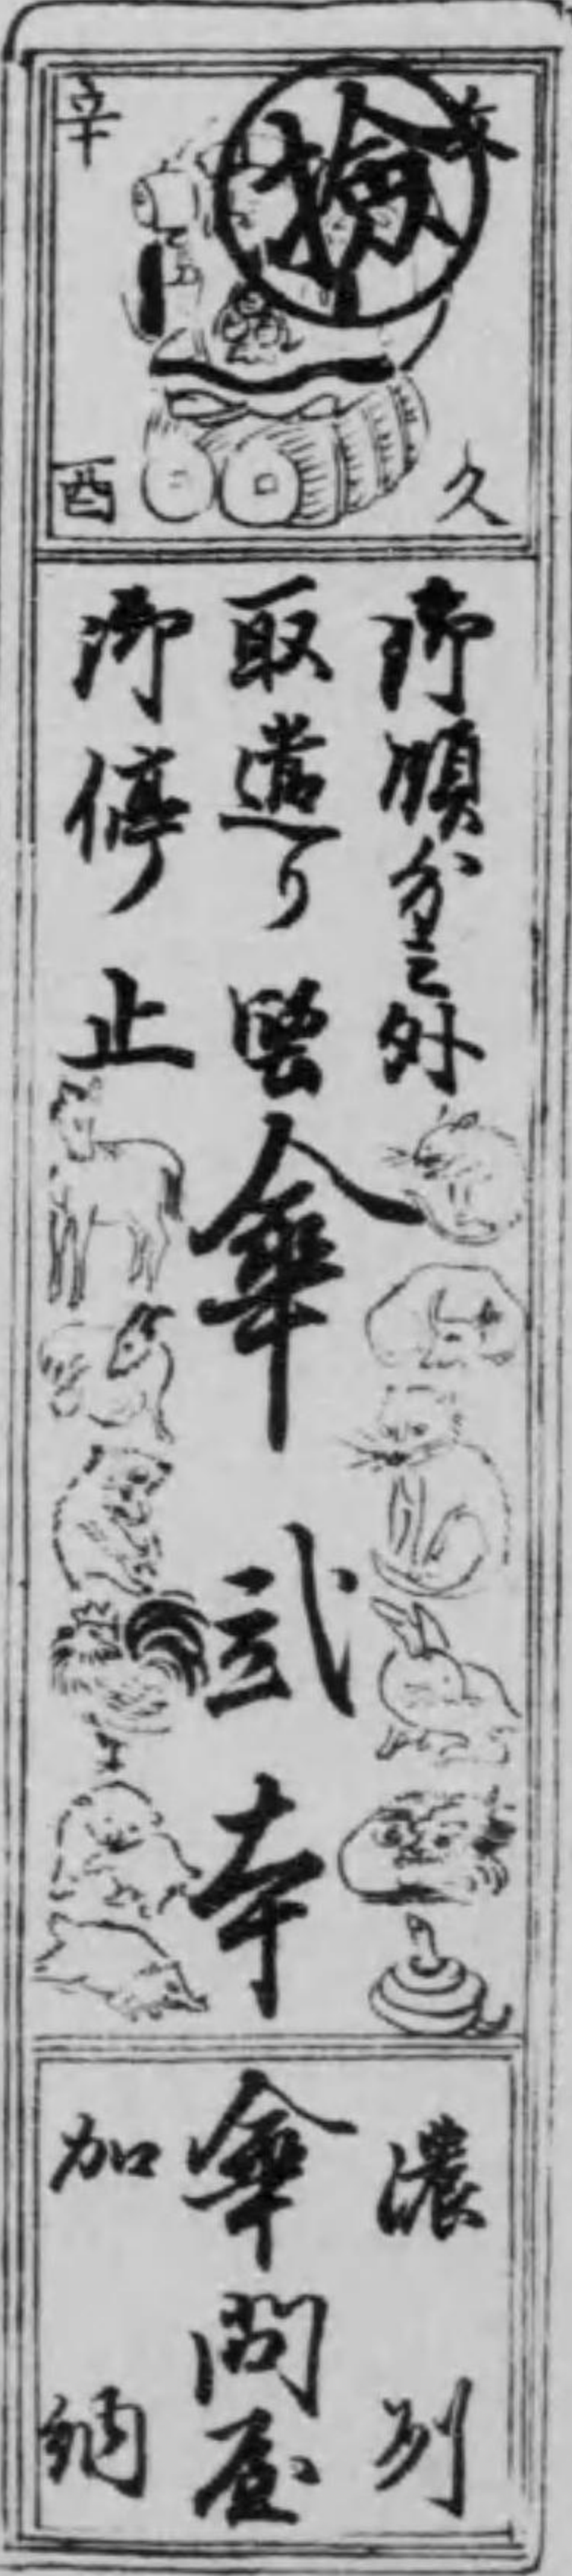 文久
撿
辛酉
御領分之外
取遣り堅
御停止
傘弍本
濃州
傘問屋
加納